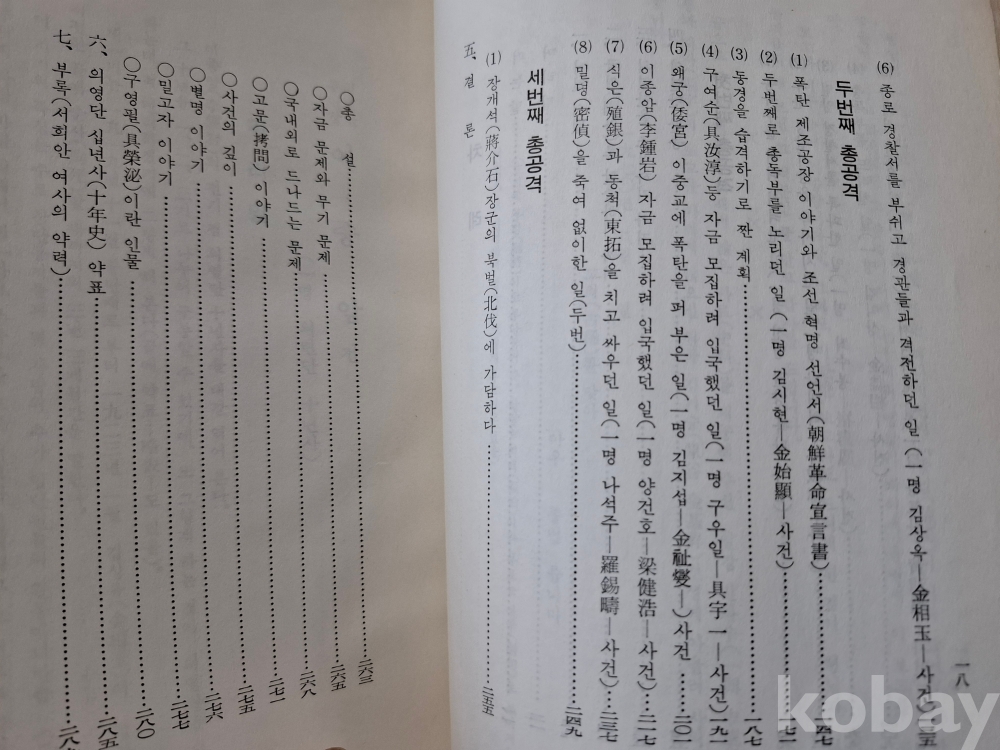 (6) 종로 경찰서를 부쉬고 경관들과 격전하던 일(一명 김상옥—金相玉—사건)
두번째 총공격
(1) 폭탄 제조공장 이야기와 조선 혁명 선언서(朝鮮革命宣言書)
(2) 두번째로 총독부를 노리던 일 (一명 김시현—金始顯—사건) 一七一
(3) 동경을 습격하기로 짠 계획 一八七
(4) 구여순(具汝淳)등 자금 모집하려 입국했던 일(一명 구우일—具宇一—사건) 一九一
(5) 왜궁(倭宮) 이중교에 폭탄을 퍼 부은 일(一명 김지섭—金祉燮—)사건 二〇一
(6) 이종암(李鍾岩) 자금 모집하려 입국했던 일(一명 양건호—梁健浩—사건) 二一七
(7) 식은(殖銀)과 동척(東拓)을 치고 싸우던 일(一명 나석주—羅錫疇—사건) 二三七
(8) 밀뎡(密偵)을 죽여 없이한 일(두번) 二四九
세번째 총공격
(1) 장개석(蔣介石)장군의 북벌(北伐)에 가담하다 二五五
五、결 론
一八
○총 설 二六三
○자금 문제와 무기 문제 二六五
○국내외로 드나드는 문제 二六八
○고문(拷問) 이야기 二七一
○사건의 깊이 二七五
○별명 이야기 二七六
○밀고자 이야기 二七七
○구영필(具榮泌)이란 인물 二八〇
六、의영단 십년사(十年史) 약표 二八五
七、부록(서희안 여사의 약력)
kobay